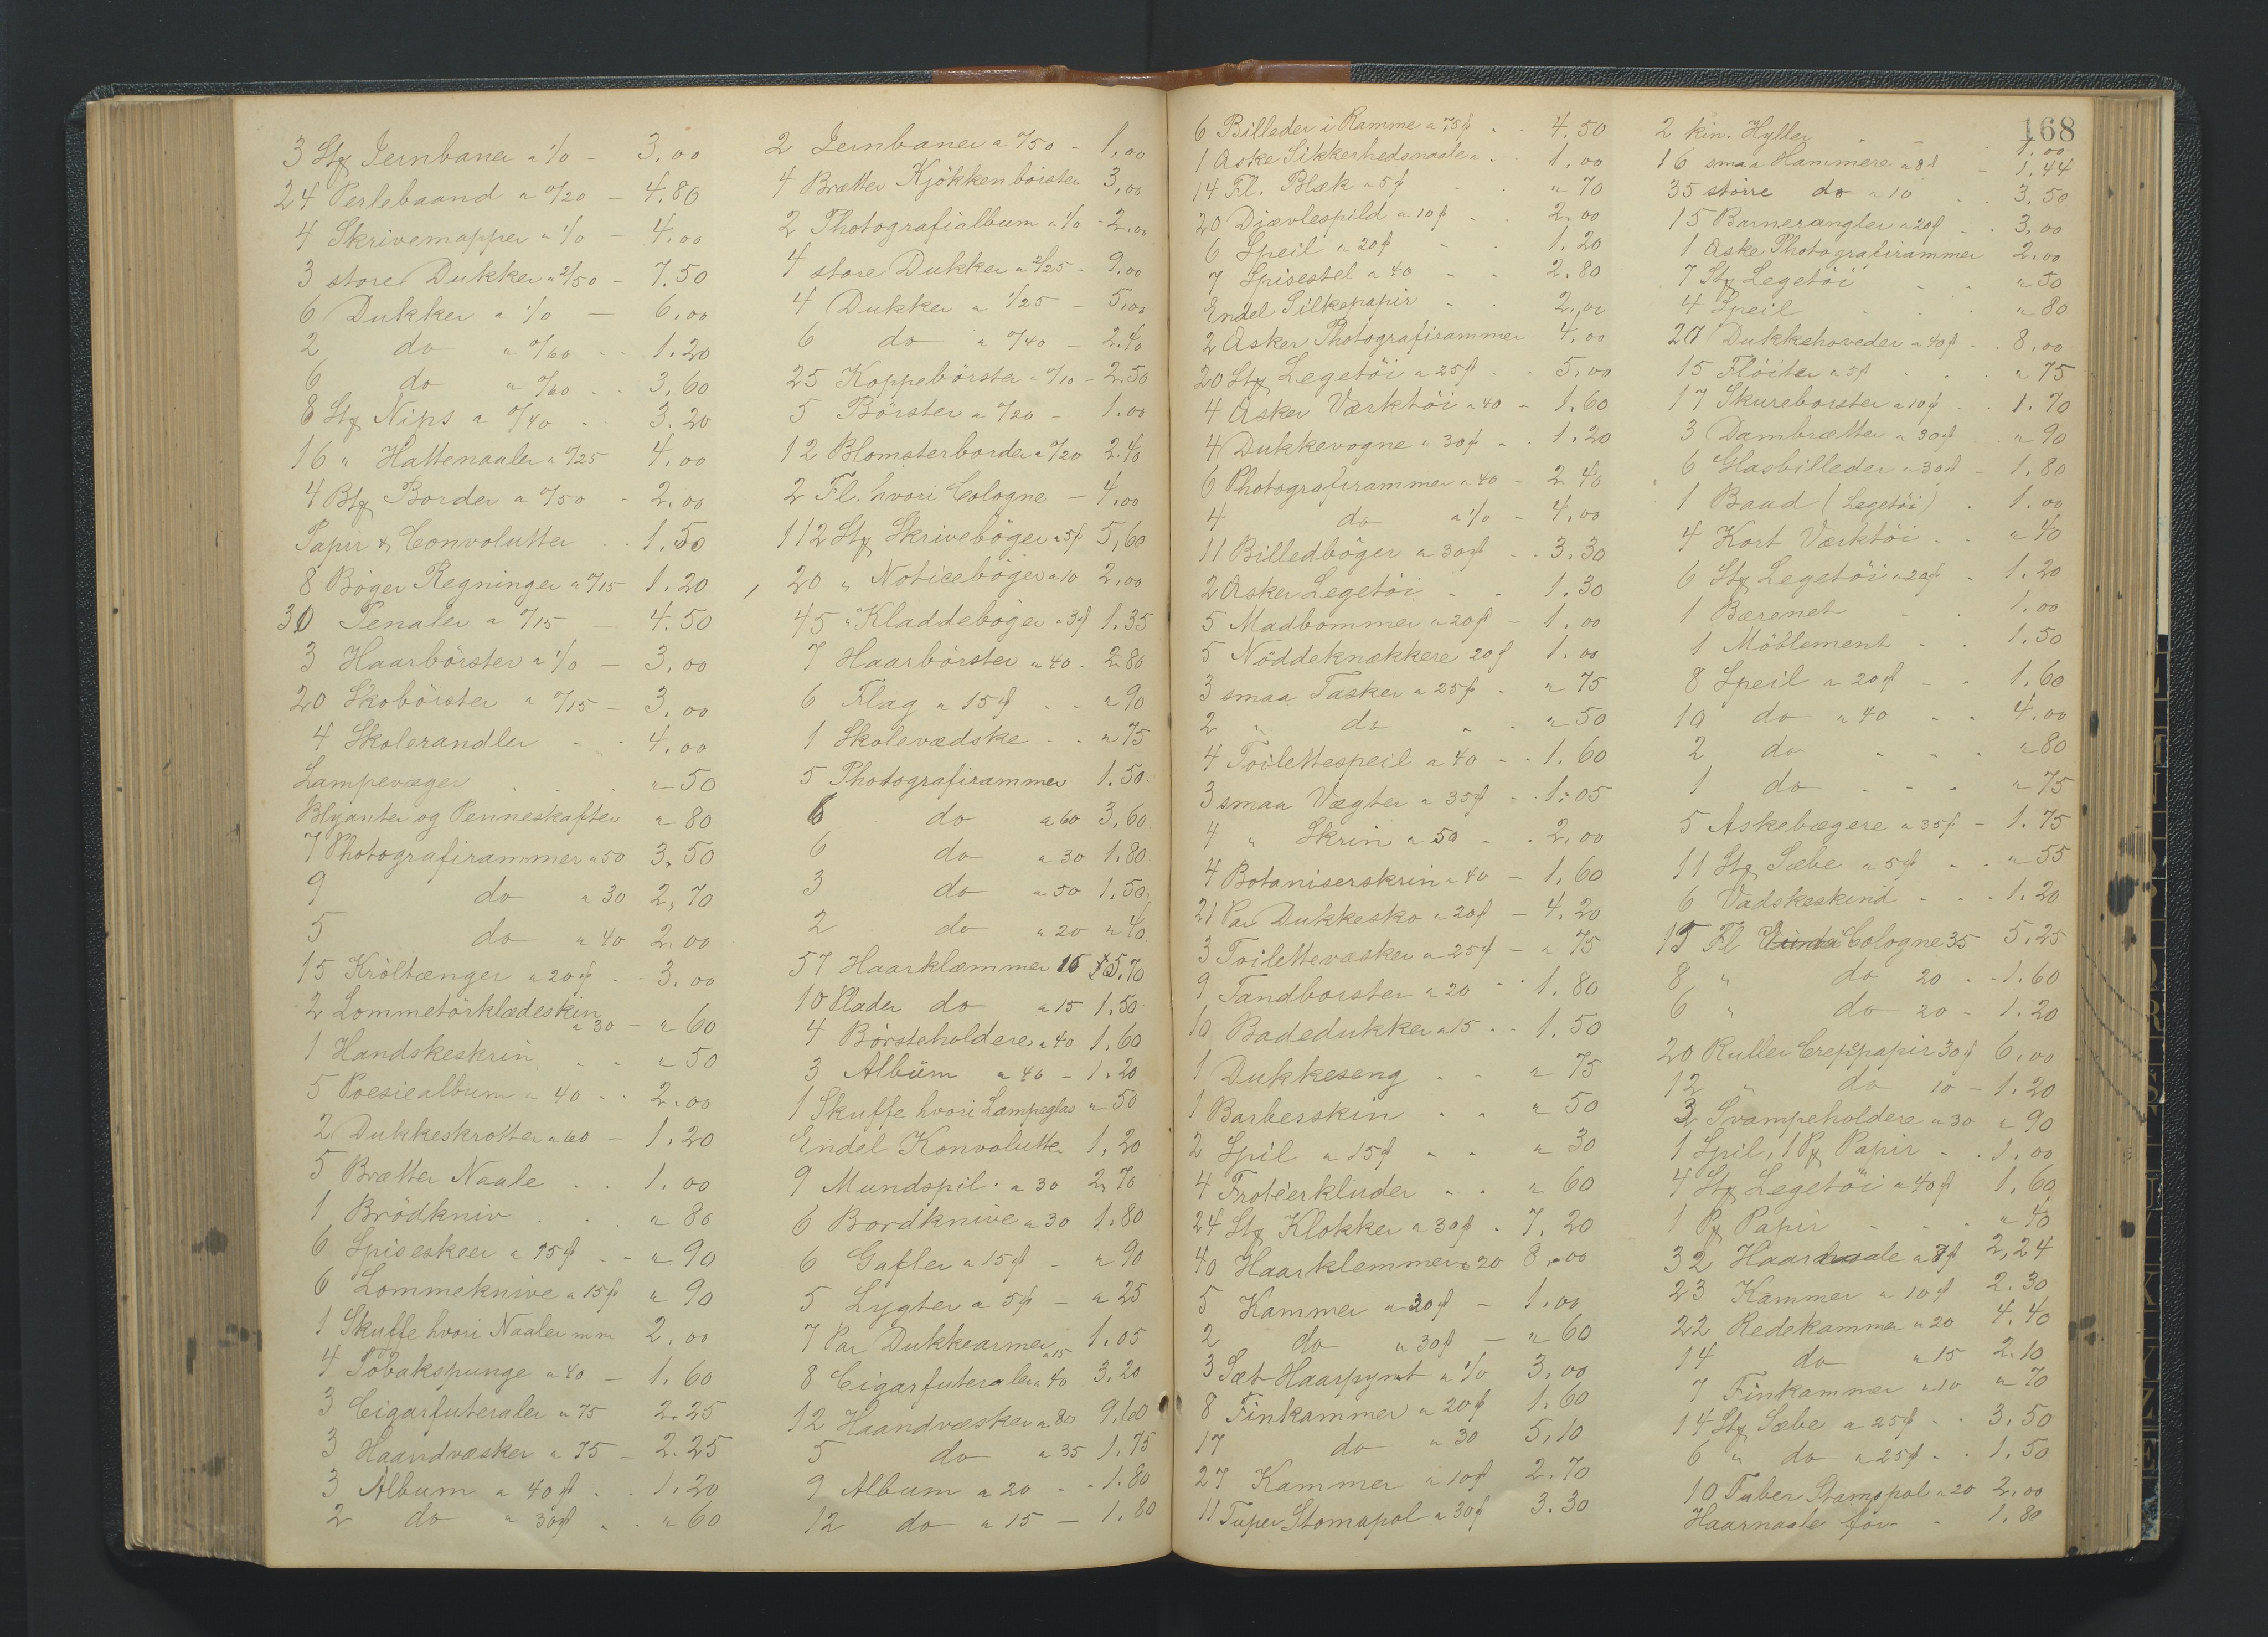 3 Stk Jernbaner a 1/0 - 3,00
24 Perlebaand a 0/20 - 4.80
4 Skrivemapper a 1/0 - 4.00
3 store Dukker a 2/50 - 7.50
6 Dukker a 1/0 - 6,00
2 do a 0/60 - 1.20
6 do a 0/60 - 3,60
8 Stk Nips a 0/40 - 3.20
16 " Hattenaaler a 0/25 4,00
4 Stk Border a 0/50 - 2,00
Papir & Convolutter - 1.50
8 Bøger Regninger a 0/15 1.20
30 Penaler a 0/15 - 4.50
3 Haarbörster a 1/0 - 3,00
20 Skobörster a 0/15 - 3,00
4 Skolerandler - 4,00
Lampevæger " 50
Blyanter og Penneskafter " 80
7 Photografirammer a 50 3,50
9 do a 30 2,70
5 do a 40 2.00
15 Kröltænger a 20 ø - 3.00
2 Lommetörklædeskin a 30 - " 60
1 Handskeskrin - " 50
5 Poesiealbum a 40 - 2.00
2 Dukkeskrotter a 60 - 1.20
5 Brætter Naale - 1.00
1 Brödkniv " 80
6 Spiseskeer a 15 ø - " 90
6 Lommeknive a 15 ø " 90
1 Skuffe hvori Naaler m.m 2,00
4 Tobakspunge a 40 - 1.60
3 Cigarfuteraler a 75 2.25
3 Haandvasker a 75 - 2.25
3 Album a 40 ø - 1.20
2 do a 30 ø - " 60
2 Jernbaner a 0/50 - 1,00
4 Brætter Kjökkenbörster 3,00
2 Photografialbum a 1/0 - 2,00
4 store Dukker a 2/25 - 9,00
4 Dukker a 1/25 - 5,00
6 do a 0/40 - 2.40
25 Koppebörster a 0/10 - 2.50
5 Börster a 0/20 - 1.00
12 Blomsterborder a 0/20 2.40
2 Fl. hvori Cologne - 4,00
112 Stk Skrivebøger a 5 ø 5,60
20 " Noticebøger a 10 2,00
45 " Kladdebøger a 3 ø 1.35
7 Haarbörster a 40 - 2.80
6 Flag a 15 ø - " 90
1 Skolevædske - " 75
5 Photografirammer 1.50
6 do a 60 3,60.
6 do a 30 1.80.
3 do a 50 1,50.
2 do a 20 " 40
57 Haarklæmmer 10 5.70
10 Plader do a 15 1,50
4 Börsteholdere a 40 1,60
3 Albüm a 40 - 1.20
1 Skuffe hvori Lampeglas " 50
Endel Konvolutter 1,20
9 Mundspil a 30 2,70
6 Bordknive a 30 1.80
6 Gafler a 15 ø - " 90
5 Lygter a 5 ø - " 25
7 Par Dukkearmer a 15 1.05
8 Cigarfuteraler a 40 3.20
12 Haandvæsker a 80 9,60
5 do a 35 1.75
9 Album a 20 - 1.80
12 do a 15 - 1.80
6 Billeder i Ramme a 75 ø - 4.50
1 Aske Sikkerhedsnaale - 1.00
14 Fl. Blæk a 5 ø - " 70
20 Djævlespild a 10 ø - 2.00
6 Speil a 20 ø - 1.20
7 Spisestel a 40 - 2.80
Endel Silkepapir - 2,00
2 Asker Photografirammer 4,00
20 Stk Legetöi a 25 ø - 5,00
4 Asker Værktöi a 40 - 1.60
4 Dukkevogne a 30 ø - 1.20
6 Photografirammer a 40 - 2.40
4 do a 1/0 - 4,00
11 Billedbøger a 30 ø - 3.30
2 Asker Legetöi - 1.30
5 Madbommer a 20 ø - 1.00
5 Nöddeknækkere 20 ø 1.00
3 smaa Tasker a 25 ø - " 75
2 " do - " 50
4 Toilettespeil a 40 - 1.60
3 smaa Vægter a 35 ø - 1.05
4 " Skrin a 50 - 2.00
4 Botaniserskrin a 40 - 1,60
21 Par Dukkesko a 20 ø - 4.20
3 Toilettevasker a 25 ø - " 75
9 Tandborster a 20 - 1.80
10 Badedukker a 15 - 1.50
1 Dukkeseng - " 75
1 Barberskin - " 50
2 Spil a 15 ø - " 30
4 Frotéerkluder - " 60
24 Stk Klokker a 30 ø - 7.20
40 Haarklemmer a 20 8,00
5 Kammer a 20 ø - 1,00
2 do a 30 ø - " 60
3 Sæt Haarpynt a 1/0 3,00
8 Finkammer a 20 ø 1,60
17 do a 30 5,10
27 Kammer a 10 ø 2.70
11 Tuper Stomapol a 30 ø 3.30
168
2 kin. Hyller - 1.00
16 smaa Hammere a 9 ø - 1,44
35 större do a 10 - 3.50
15 Barnerangler a 20 ø - 3.00
1 Aske Photografirammer 2,00
7 Stk Legetöi " 50
4 Speil " 80
20 Dukkehoveder a 40 ø - 8,00
15 Flöiter a 5 ø " 75
17 Skureborster a 10 ø - 1.70
3 Dambrætter a 30 ø " 90
6 Glasbilleder a 30 ø - 1.80
1 Baad (Legetöi) - 1.00
4 Kort Værktöi - " 40
6 Stk Legetöi a 20 ø - 1.20
1 Bærenet - 1.00
1 Möblement - 1.50
8 Speil a 20 ø - 1.60
10 do a 40 - 4.00
2 do - " 80
1 do - " 75
5 Askebægere a 35 ø - 1.75
11 Stk Sæbe a 5 ø - " 55
6 Vadskeskind - 1.20
15 Fl Cologne 35 5,25
8 " do 20 - 1.60
6 " do 20 - 1.20
20 Ruller Creppapir 30 ø 6,00
12 " do 10 - 1.20
3 Svampeholdere a 30 " 90
1 Spil, 1 Pk Papir - 1.00
4 Stk Legetöi a 40 ø 1,60
1 Pk Papir - " 40
32 Haarnaale a 7 ø 2,24
23 Kammer a 10 ø 2.30
22 Redekammer a 20 4.40
14 do a 15 2.10
7 Finkammer a 10 " 70
14 Stk Sæbe a 25 ø - 3.50
6 " do a 25 ø - 1.50
10 Tuber Stomopol a 20 2,00
Haarnaale for - 1.80